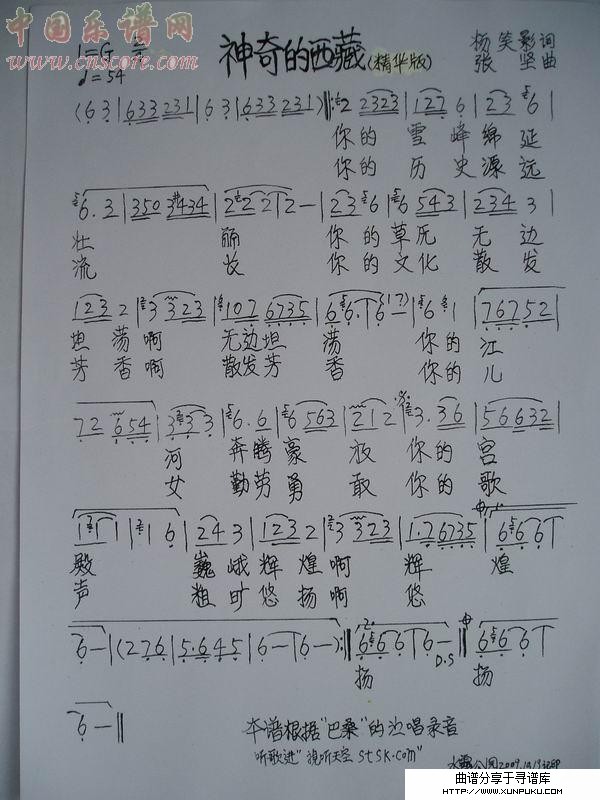 中国乐谱网
www.cnscore.com
1=G 2/4
♩=54
神奇的西藏(精华版)
杨笑影词
张坚曲
(6 3|633 231|6 3|633 231)‖:2 2323|127 6|23 6|
你的 雪峰绵延
你的 历史源远
6.3|350 3434|2222|2-|23 6|6 543|234 3|
壮 丽 你的草原 无边
流长 你的文化 散发
123 2|3 323|107 6735|6 6.|6(1?)|6 1|76752|
坦荡啊 无边坦荡 你的江
芳香啊 散发芳香 你的儿
72 654|3 3 3|6.6|6 563|212|3.36|56632|
河 奔腾豪放 你的宫
女 勤劳勇敢 你的歌
111|1 6|24 3|123 2|3 323|1.7 6735|6 6 6|
殿 巍峨辉煌啊 辉煌
声 粗旷悠扬啊 悠
6-|(276|5.645|6-|6-):‖6 6 6|6-‖6 6 6|
D.S
扬 扬
6-‖
本谱根据"巴桑"的演唱录音
听歌进"视听天空stsk.com"
曲谱分享于寻谱库
www.xunpuku.com